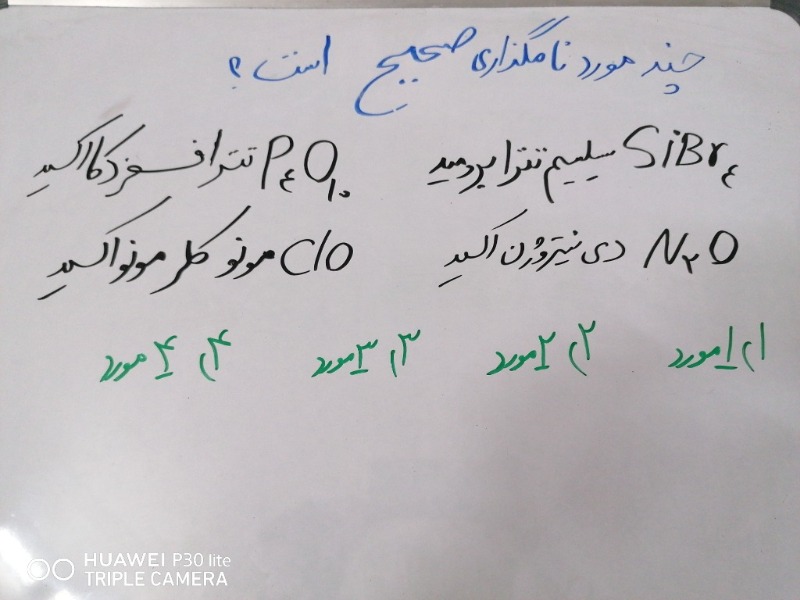 چند مورد نامگذاری صحیح است؟
SiBr۴ سیلیسیم تترا برمید P۴O۱۰ تترا فسفر دکا اکسید
N۲O دی نیتروژن اکسید ClO مونو کلر مونو اکسید
۱) ۱ مورد ۲) ۲ مورد ۳) ۳ مورد ۴) ۴ مورد
HUAWEI P30 lite
TRIPLE CAMERA